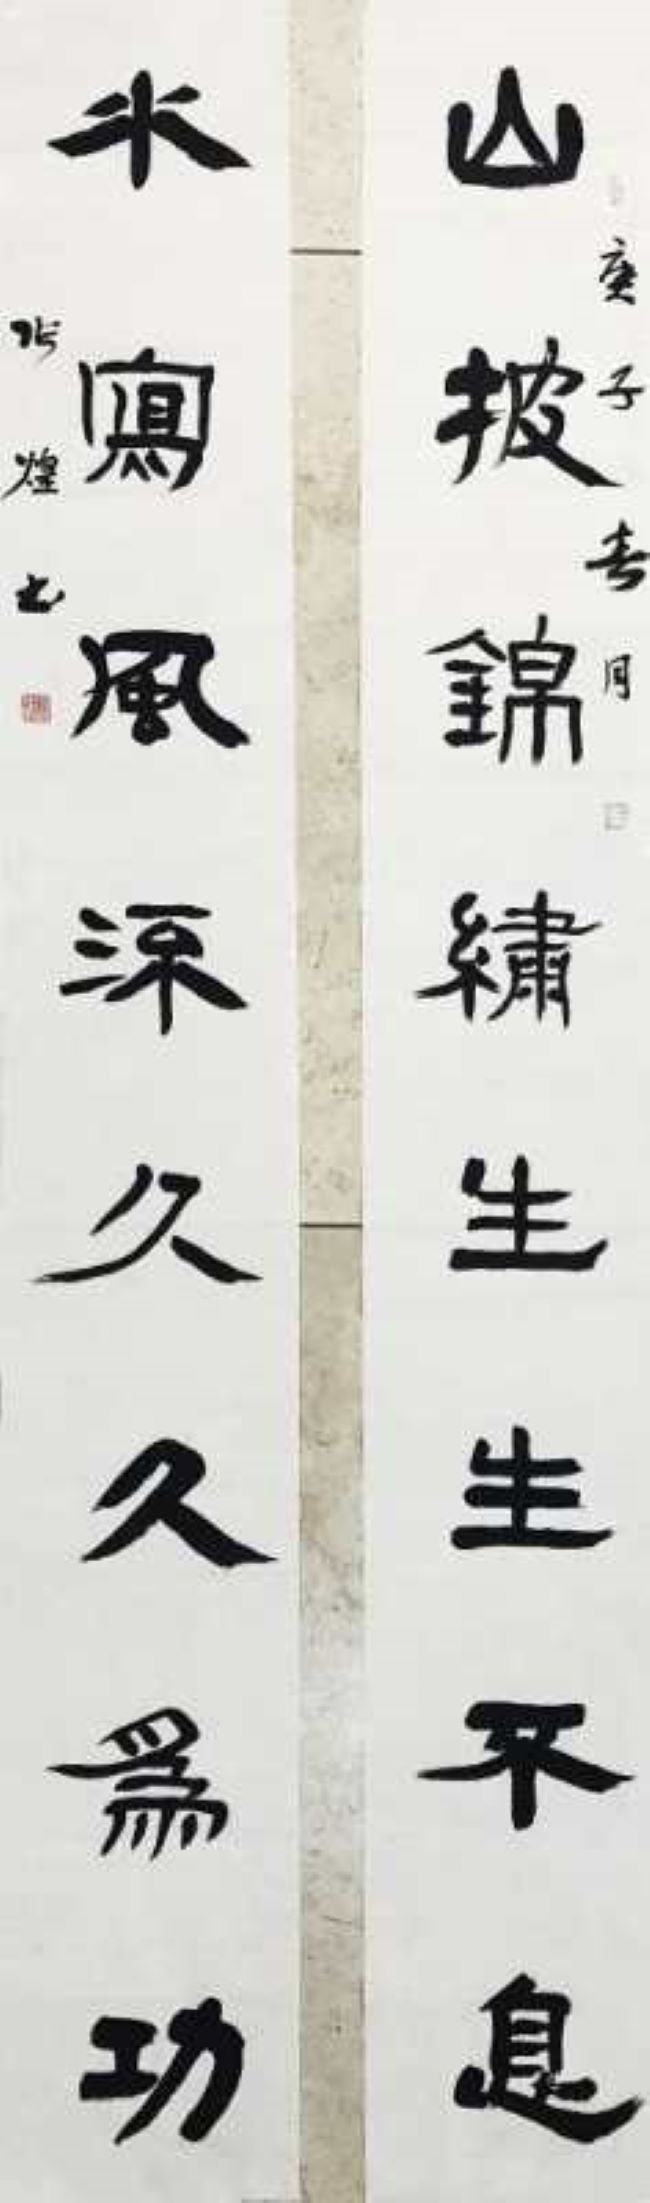 山披錦繡生生不息
庚子春月
水寫風流久久爲功
張煌書